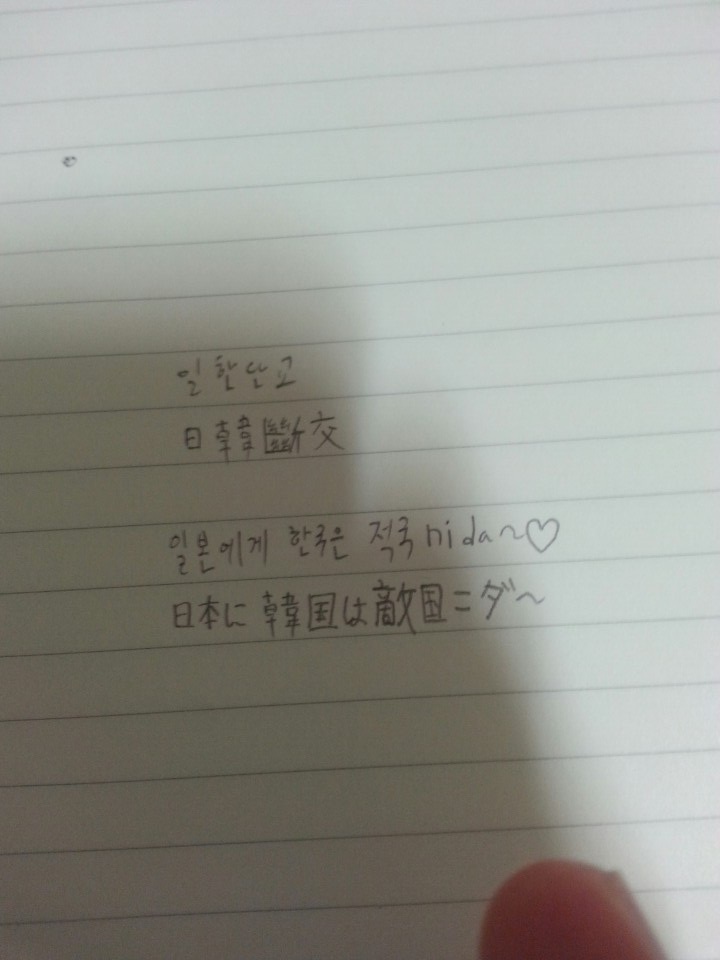 일한단교
日韓斷交
일본에게 한국은 적국 nida~♡
日本に韓国は敵国ニダ~